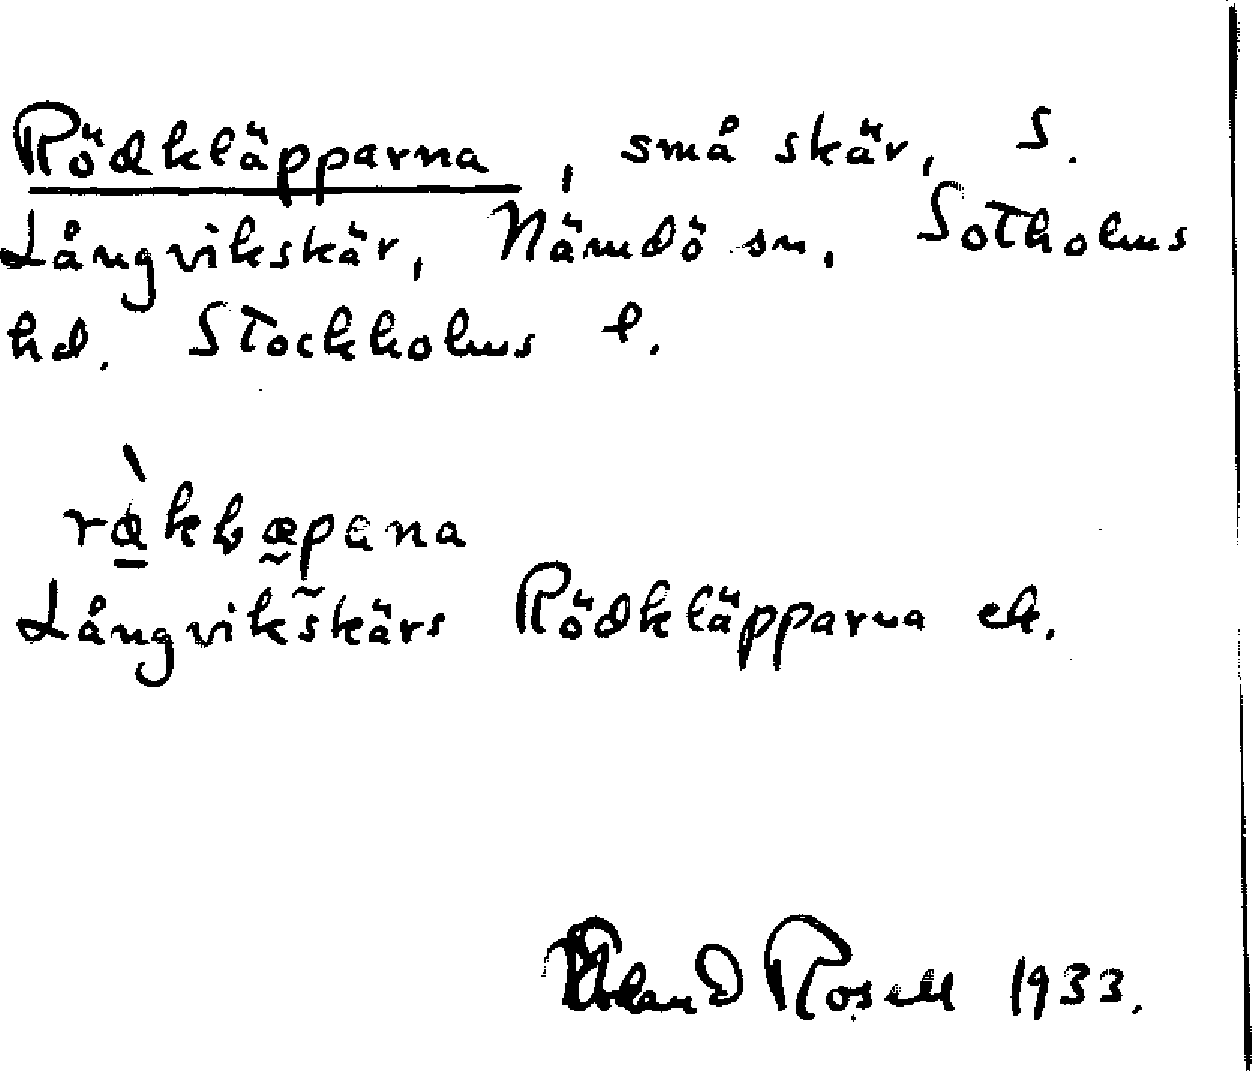 Rödkläpparna, små skär, S.
Långvikskär, Nämdö sn, Sotholms
hd. Stockholms l.
Långvikskärs Rödkläpparna ek.
Roland Rosell 1933.